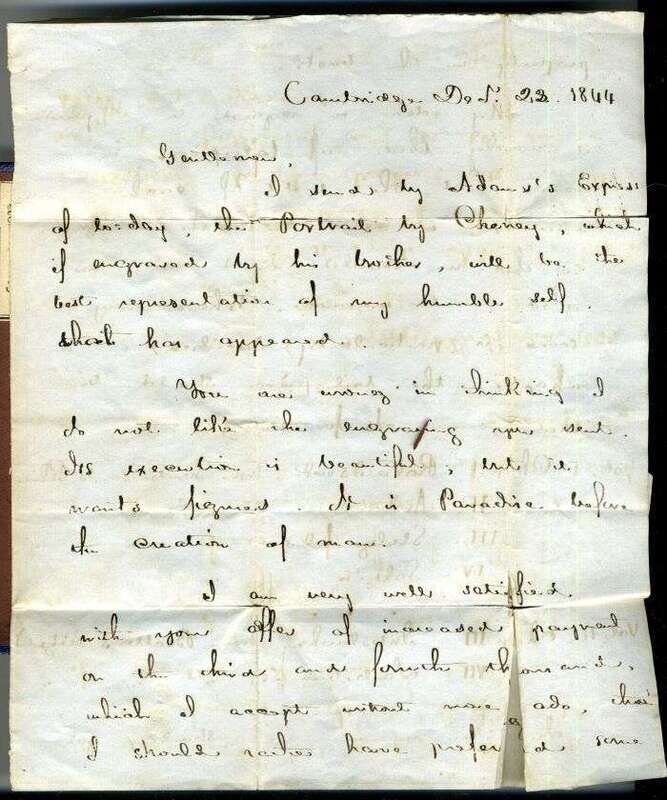 Cambridge Dec. 22. 1844
Gentlemen,
I send by Adams's Express
of to-day, the Portrait by Cheney, which
if engraved by his brother, will be the
best representation of my humble self
that has appeared.
You are wrong in thinking I
do not like the engraving you sent.
Its execution is beautiful, but it
wants figures. It is Paradise before
the creation of man.
I am very well satisfied
with your offer of increased payment
on the third and fourth thousand,
which I accept without more ado, tho'
I should rather have preferred some